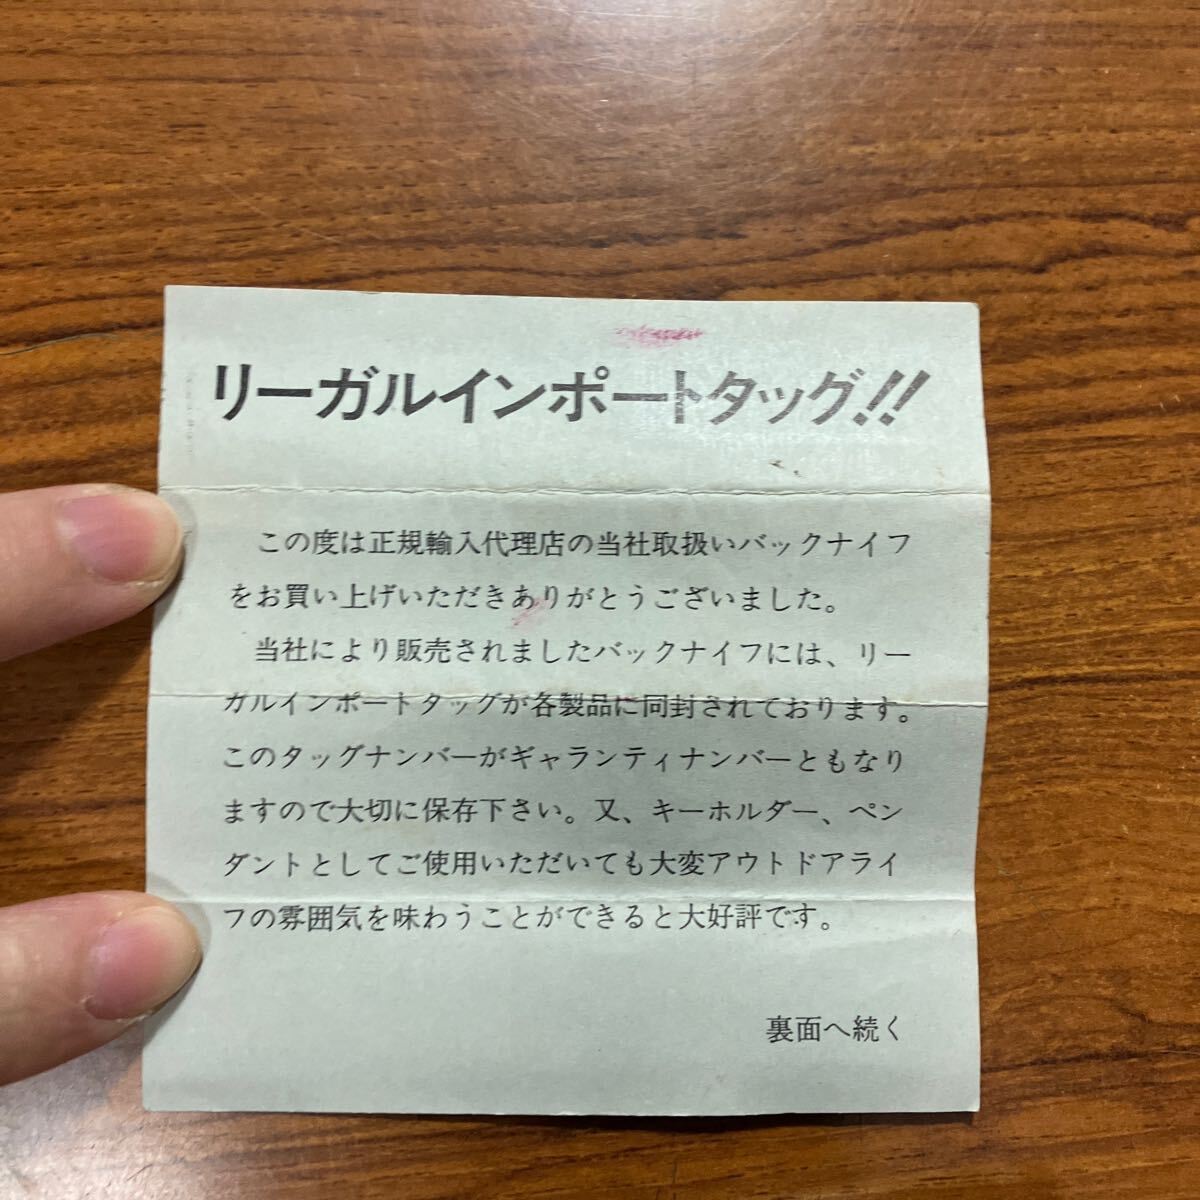 リーガルインポートタッグ!!
この度は正規輸入代理店の当社取扱いバックナイフ
をお買い上げいただきありがとうございました。
当社により販売されましたバックナイフには、リー
ガルインポートタッグが各製品に同封されております。
このタッグナンバーがギャランティナンバーともなり
ますので大切に保存下さい。又、キーホルダー、ペン
ダントとしてご使用いただいても大変アウトドアライ
フの雰囲気を味わうことができると大好評です。
裏面へ続く